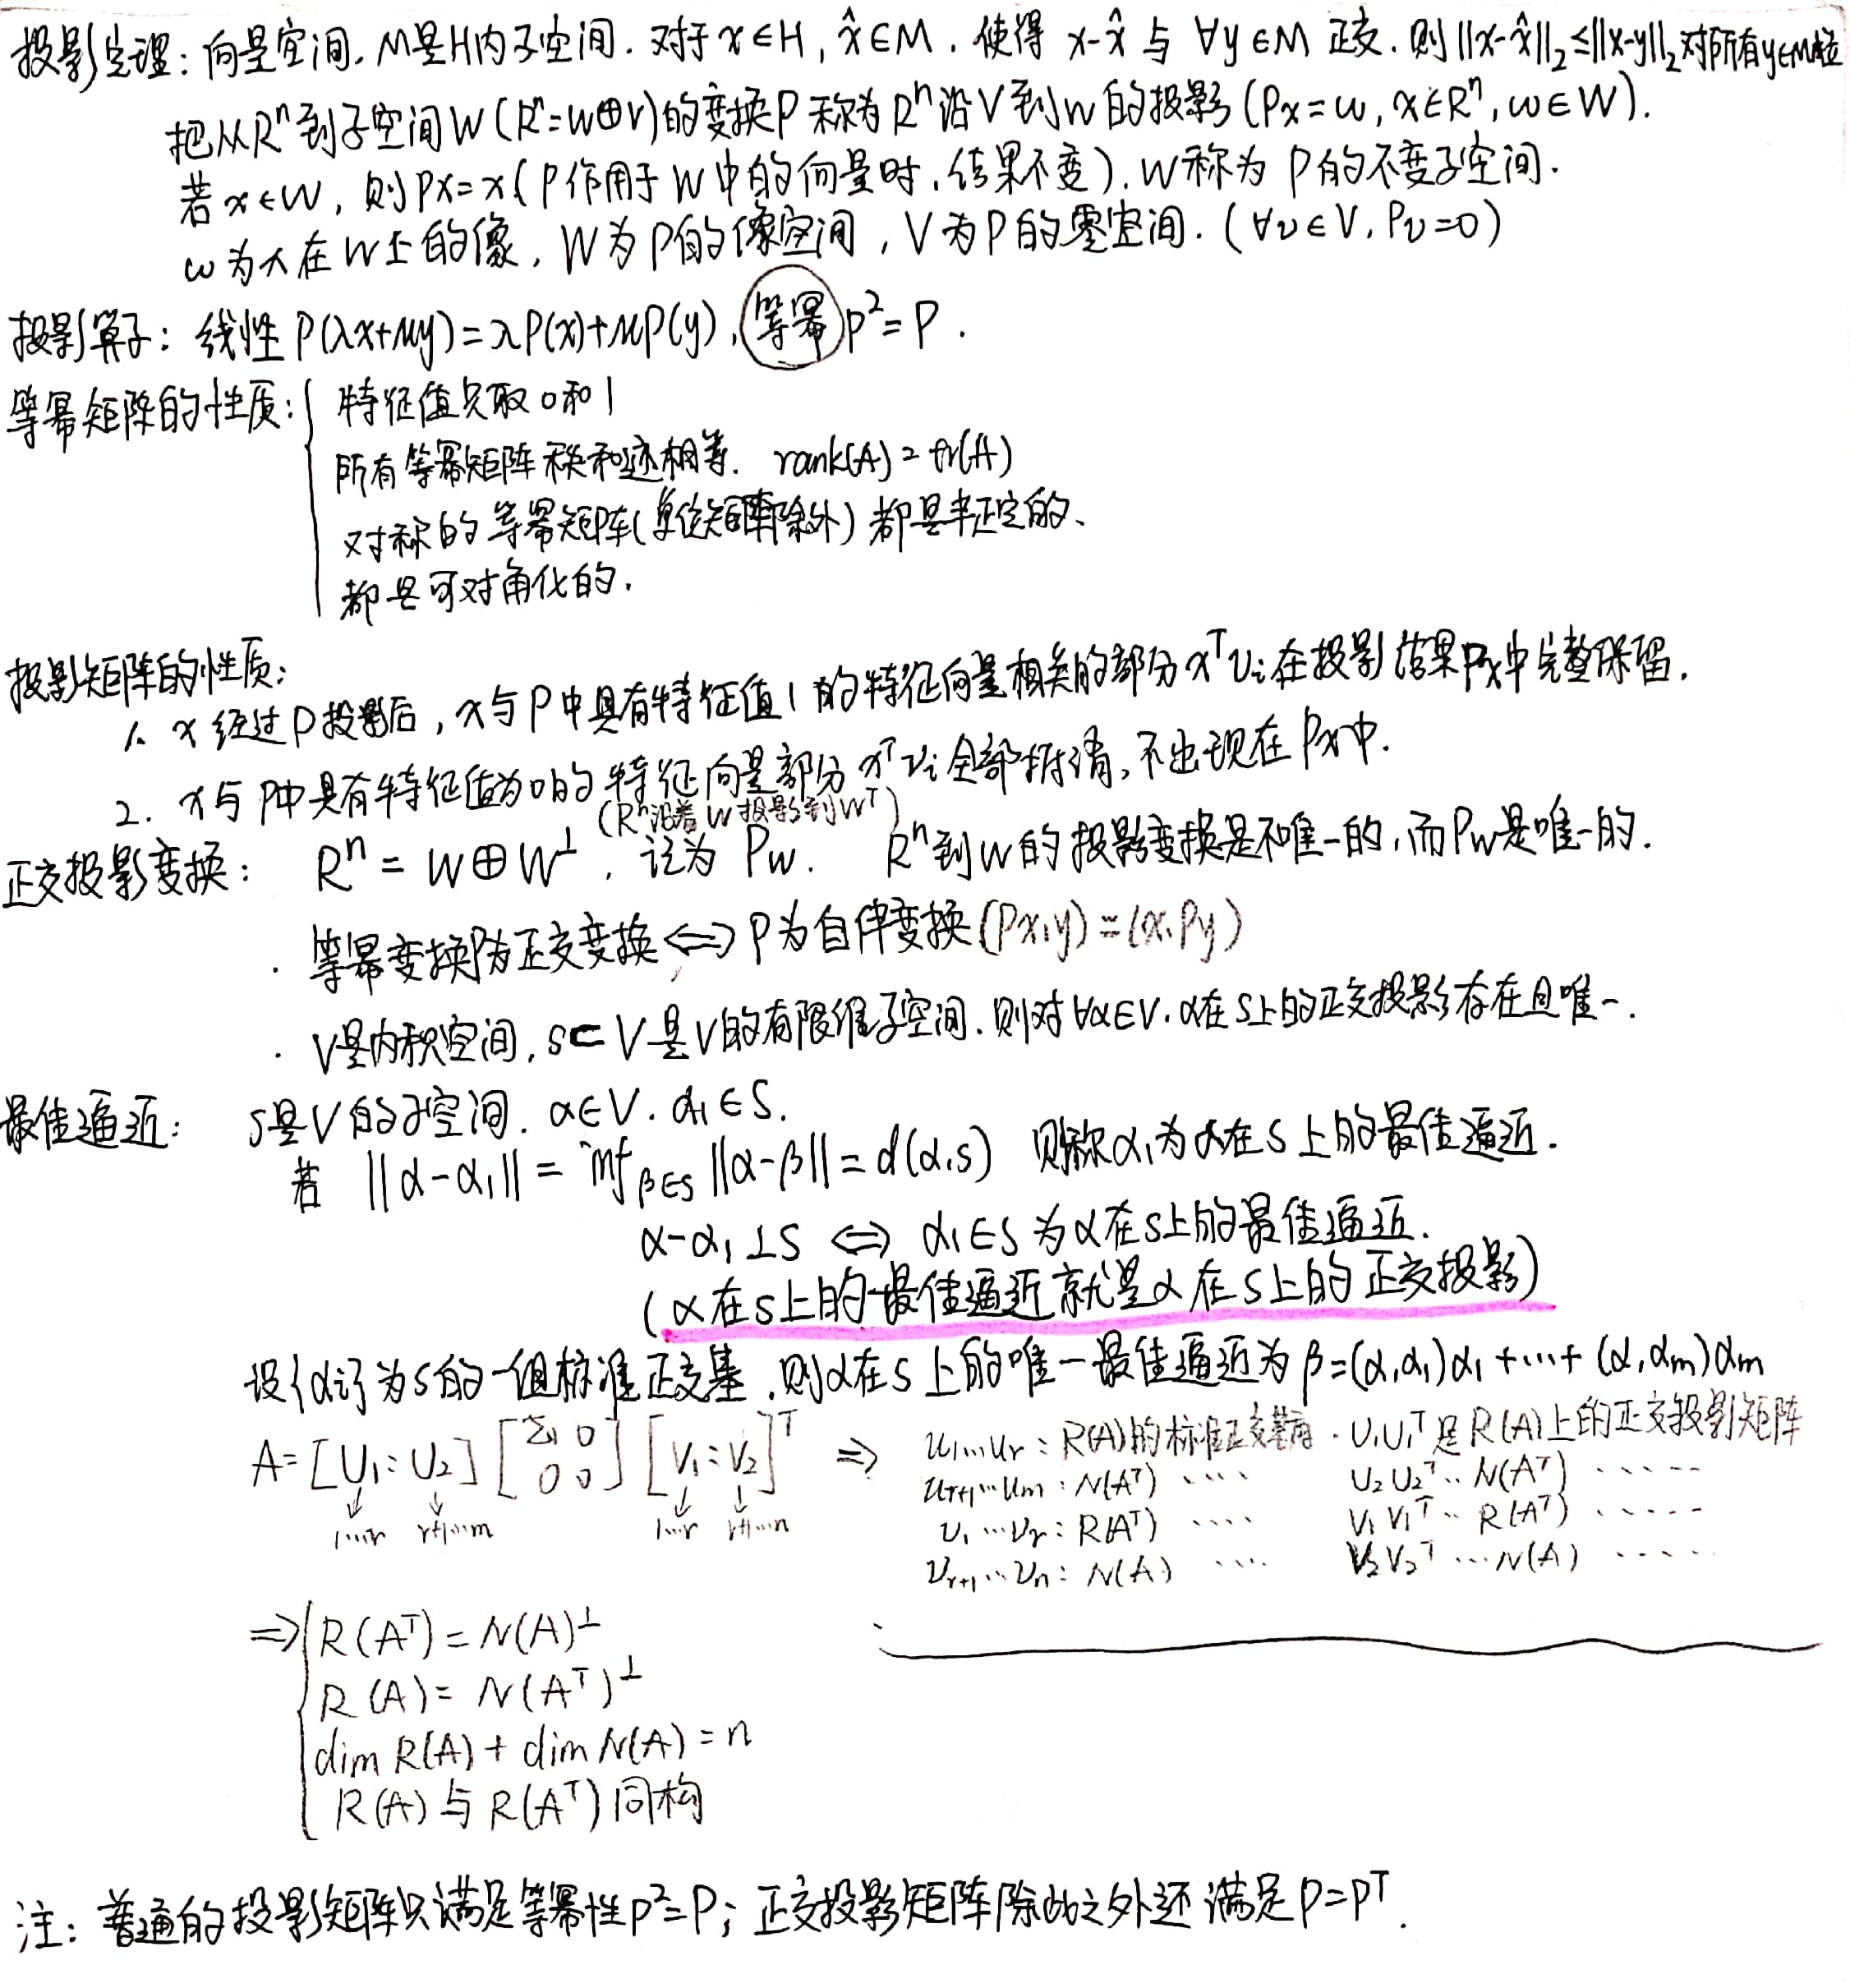 投影定理：向量空间，M是H内子空间．对于x∈H，x̂∈M．使得 x-x̂ 与 ∀y∈M 正交．则||x-x̂||₂≤||x-y||₂对所有y∈M恒
把从Rⁿ到子空间W(Rⁿ=W⊕V)的变换P 称为Rⁿ沿V到W的投影(Px=ω, x∈Rⁿ, ω∈W).
若x∈W，则Px=x(P作用于W中的向量时，结果不变)．W称为P的不变子空间．
ω为x在W上的像，W为P的像空间，V为P的零空间．(∀v∈V, Pv=0)
投影算子：线性P(λx+μy)=λP(x)+μP(y)，等幂P²=P．
等幂矩阵的性质：{ 特征值只取0和1
所有等幂矩阵秩和迹相等．rank(A)=tr(A)
对称的等幂矩阵(单位矩阵除外)都是半正定的、
都是可对角化的．
投影矩阵的性质：
1. x经过P投影后，x与P中具有特征值1的特征向量相关的部分xᵀvᵢ在投影结果Px中完整保留．
2. x与P中具有特征值为0的特征向量部分xᵀvᵢ全部抵消，不出现在Px中．
(Rⁿ沿着W投影到Wᵀ)
正交投影变换：Rⁿ=W⊕W^⊥，记为P_W．Rⁿ到W的投影变换是不唯一的，而P_W是唯一的．
· 等幂变换P为正交变换⟺P为自伴变换(Px,y)=(x,Py)
· V是内积空间，S⊂V是V的有限维子空间．则对∀α∈V．α在S上的正交投影存在且唯一．
最佳逼近：S是V的子空间．α∈V．α₁∈S.
若 ||α-α₁||=inf_{β∈S}||α-β||=d(α,S) 则称α₁为α在S上的最佳逼近．
α-α₁⊥S ⟺ α₁∈S为α在S上的最佳逼近．
(α在S上的最佳逼近就是α在S上的正交投影)
设{αᵢ}为S的一组标准正交基．则α在S上的唯一最佳逼近为β=(α,α₁)α₁+⋯+(α,αm)αm
A=[U₁⋮U₂] [Σ₁ 0; 0 0] [V₁⋮V₂]ᵀ ⟹
↓ ↓ ↓ ↓
1⋯r r+1⋯m 1⋯r r+1⋯n
u₁⋯uᵣ：R(A)的标准正交基 · U₁U₁ᵀ是R(A)上的正交投影矩阵
uᵣ₊₁⋯um：N(Aᵀ) ⋯⋯ U₂U₂ᵀ⋯N(Aᵀ) ⋯⋯
v₁⋯vᵣ：R(Aᵀ) ⋯⋯ V₁V₁ᵀ⋯R(Aᵀ) ⋯⋯
vᵣ₊₁⋯vn：N(A) ⋯⋯ V₂V₂ᵀ⋯N(A) ⋯⋯
⟹{ R(Aᵀ)=N(A)^⊥
R(A)=N(Aᵀ)^⊥
dim R(A)+dim N(A)=n
R(A)与R(Aᵀ)同构
注：普通的投影矩阵只满足等幂性P²=P；正交投影矩阵除此之外还满足P=Pᵀ．